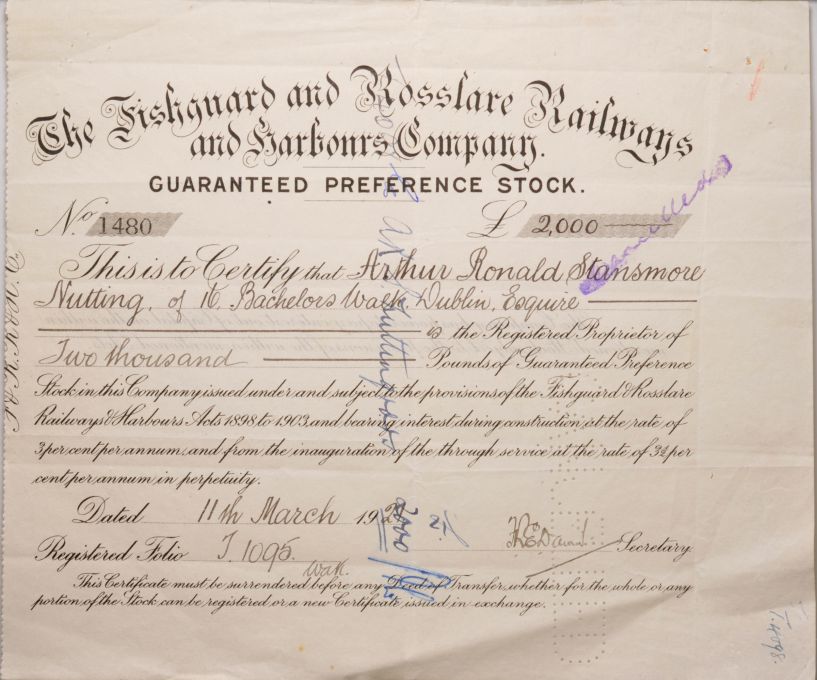 The Fishguard and Rosslare Railways
and Harbours Company.
GUARANTEED PREFERENCE STOCK.
No. 1480 £ 2,000
Cancelled
This is to Certify that Arthur Ronald Stansmore
Nutting, of 16. Bachelors Walk, Dublin, Esquire
is the Registered Proprietor of
Two thousand Pounds of Guaranteed Preference
Stock in this Company issued under and subject to the provisions of the Fishguard & Rosslare
Railways & Harbours Acts 1898 to 1903, and bearing interest during construction at the rate of
3 per cent per annum, and from the inauguration of the through service at the rate of 3½ per
cent per annum in perpetuity.
Dated 11th March 192
Registered Folio T. 1095 Secretary
This Certificate must be surrendered before any Deed of Transfer, whether for the whole or any
portion of the Stock can be registered or a new Certificate issued in exchange.
2000
T. 4098